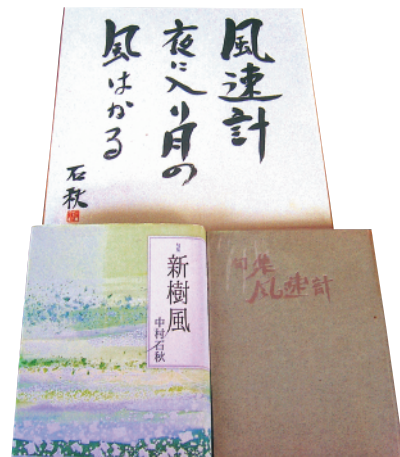 風速計
夜に入り月の
風はかる
石秋
句集
新樹風
中村石秋
句集
風速計